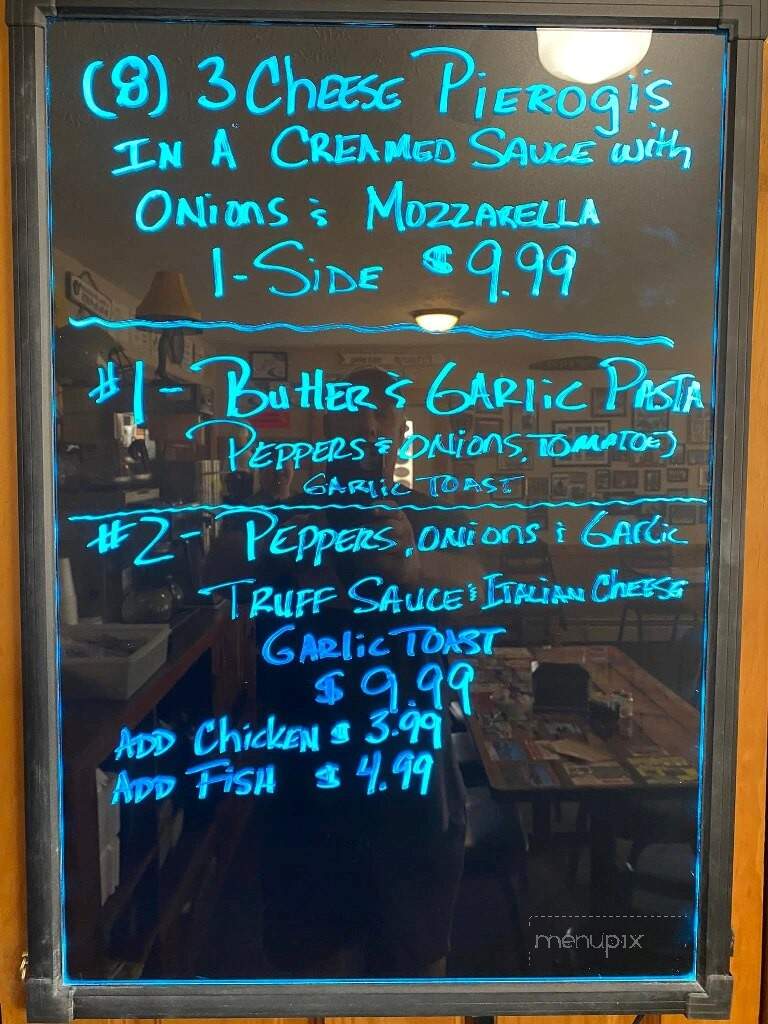 (8) 3 Cheese Pierogi's
In A Creamed Sauce with
Onions & Mozzarella
1-Side $9.99
#1- Butter & Garlic Pasta
Peppers & Onions, Tomatoes
Garlic Toast
#2- Peppers, Onions & Garlic
Truff Sauce & Italian Cheese
Garlic Toast
$9.99
Add Chicken $3.99
Add Fish $4.99
menupix